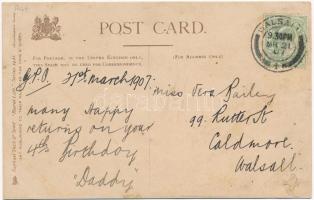 POST CARD.
FOR POSTAGE IN THE UNITED KINGDOM ONLY,
(FOR ADDRESS ONLY)
WALSALL
9.30PM
MR 21
07
G.P.O. 21st March 1907.
many Happy
returns on your
4th Birthday
"Daddy"
Miss Vera Pailey
99. Rutter St
Caldmore.
Walsall.